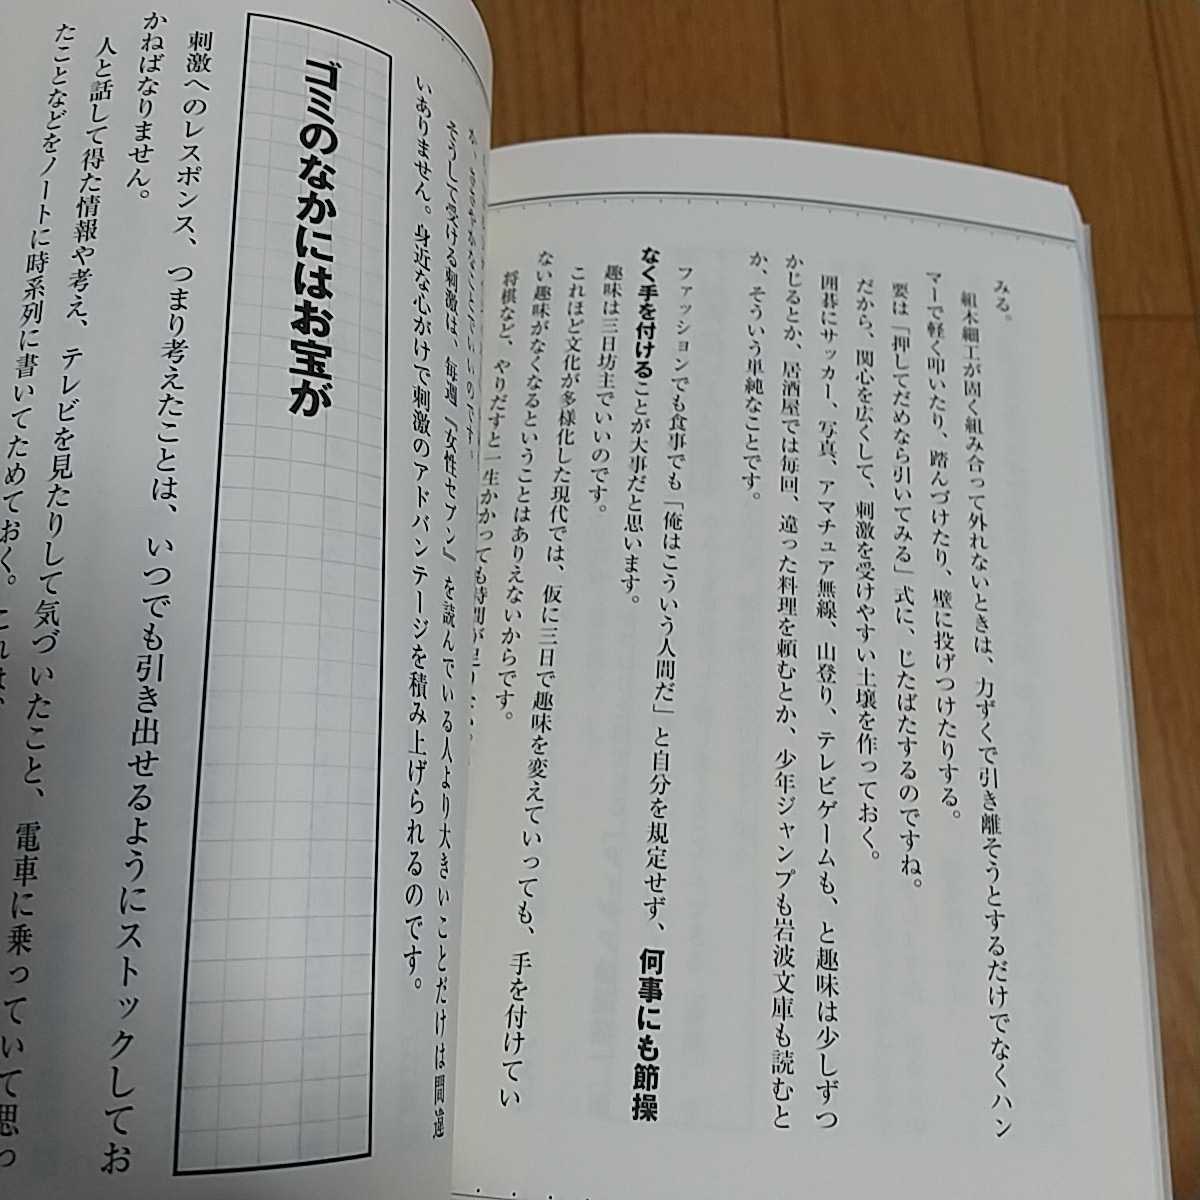 みる。
組木細工が固く組み合って外れないときは、力ずくで引き離そうとするだけでなくハン
マーで軽く叩いたり、踏んづけたり、壁に投げつけたりする。
要は「押してだめなら引いてみる」式に、じたばたするのですね。
だから、関心を広くして、刺激を受けやすい土壌を作っておく。
囲碁にサッカー、写真、アマチュア無線、山登り、テレビゲームも、と趣味は少しずつ
かじるとか、居酒屋では毎回、違った料理を頼むとか、少年ジャンプも岩波文庫も読むと
か、そういう単純なことです。
ファッションでも食事でも「俺はこういう人間だ」と自分を規定せず、何事にも節操
なく手を付けることが大事だと思います。
趣味は三日坊主でいいのです。
これほど文化が多様化した現代では、仮に三日で趣味を変えていっても、手を付けてい
ない趣味がなくなるということはありえないからです。
将棋など、やりだすと一生かかっても時間が足りない。
か、ささやかなことでいいのです。
そうして受ける刺激は、毎週『女性セブン』を読んでいる人より大きいことだけは間違
いありません。身近な心がけで刺激のアドバンテージを積み上げられるのです。
ゴミのなかにはお宝が
刺激へのレスポンス、つまり考えたことは、いつでも引き出せるようにストックしてお
かねばなりません。
人と話して得た情報や考え、テレビを見たりして気づいたこと、電車に乗っていて思っ
たことなどをノートに時系列に書いてためておく。これは、